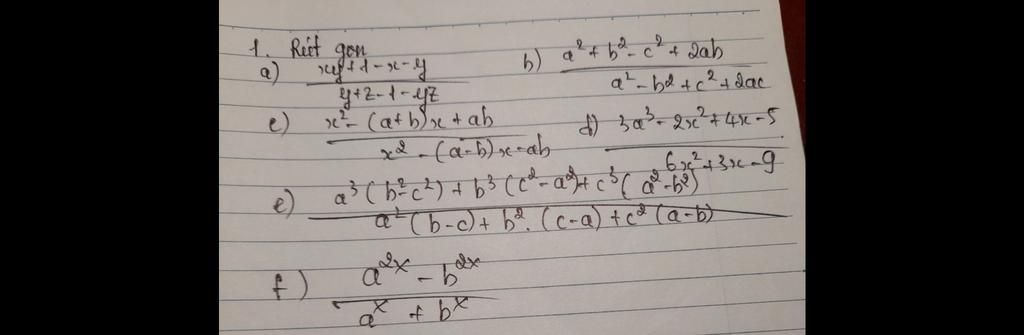 1. Rút gọn
a) (xy+1-x-y)/(y+z-1-yz) b) (a²+b²-c²+2ab)/(a²-b²+c²+2ac)
c) (x²-(a+b)x+ab)/(x²-(a-b)x-ab) d) (3a³-2x²+4x-5)/(6x²+3x-9)
e) (a³(b²-c²)+b³(c²-a²)+c³(a²-b²))/(a²(b-c)+b².(c-a)+c²(a-b))
f) (a^{2x}-b^{2x})/(a^x+b^x)